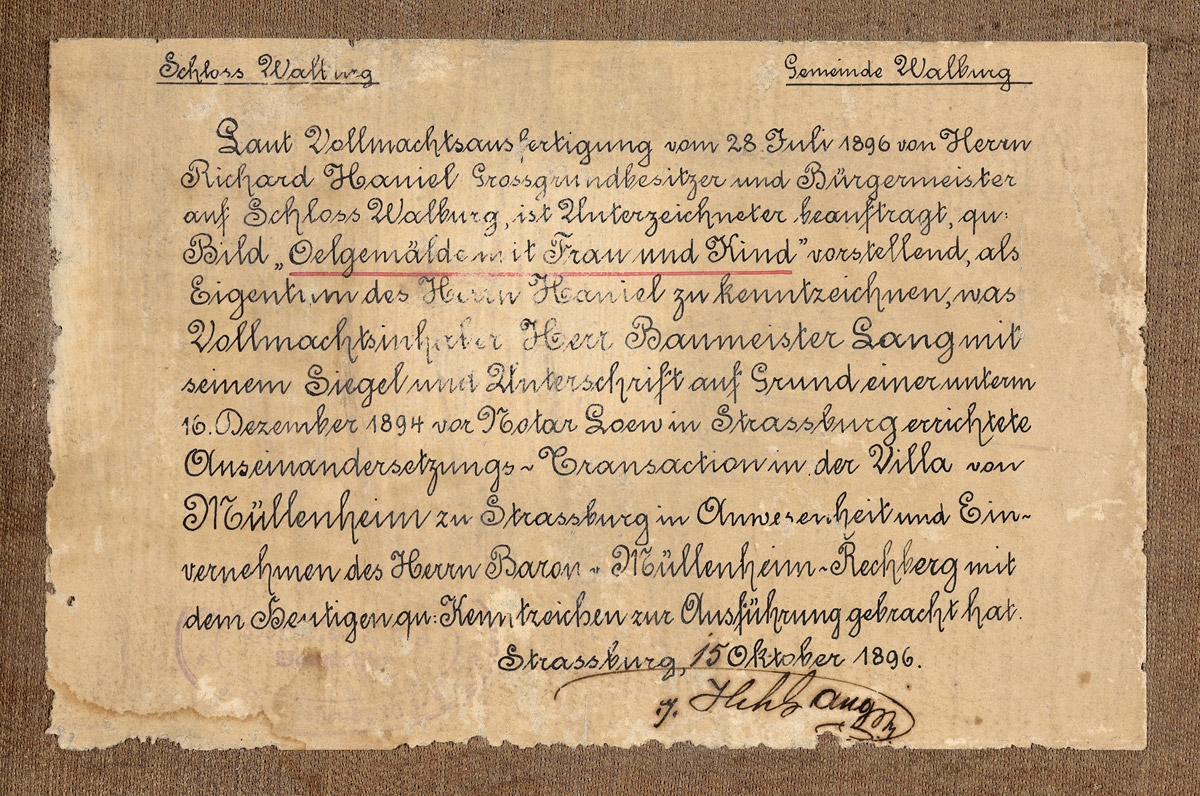 Schloss Walburg
Gemeinde Walburg
Laut Vollmachtsausfertigung vom 28. Juli 1896 von Herrn
Richard Haniel Grossgrundbesitzer und Bürgermeister
auf Schloss Walburg, ist Unterzeichneter beauftragt, qu:
Bild „Oelgemälde mit Frau und Kind" vorstellend, als
Eigentum des Herrn Haniel zu kenntzeichnen, was
Vollmachtsinhaber Herr Baumeister Lang mit
seinem Siegel und Unterschrift auf Grund einer unterm
16. Dezember 1894 vor Notar Loew in Strassburg errichtete
Auseinandersetzungs~Transaction in der Villa von
Müllenheim zu Strassburg in Anwesenheit und Ein~
vernehmen des Herrn Baron v Müllenheim~Rechberg mit
dem Heutigen qu: Kenntzeichen zur Ausführung gebracht hat.
Strassburg, 15 Oktober 1896.
Lang